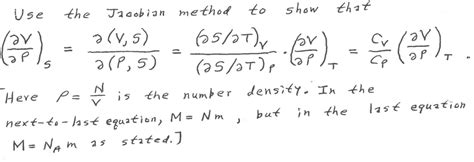 Use the Jacobian method to show that
(∂V/∂P)_S = ∂(V,S)/∂(P,S) = (∂S/∂T)_V/(∂S/∂T)_P · (∂V/∂P)_T = C_V/C_P (∂V/∂P)_T .
[Here ρ = N/V is the number density. In the
next-to-last equation, M = Nm, but in the last equation
M = N_A m as stated.]